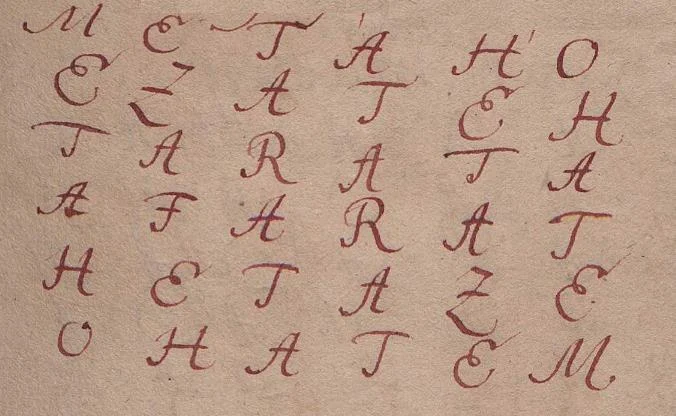 M E T A H O
E Z A T E H
T A R A T A
A F A R A T
H E T A Z E
O H A T E M